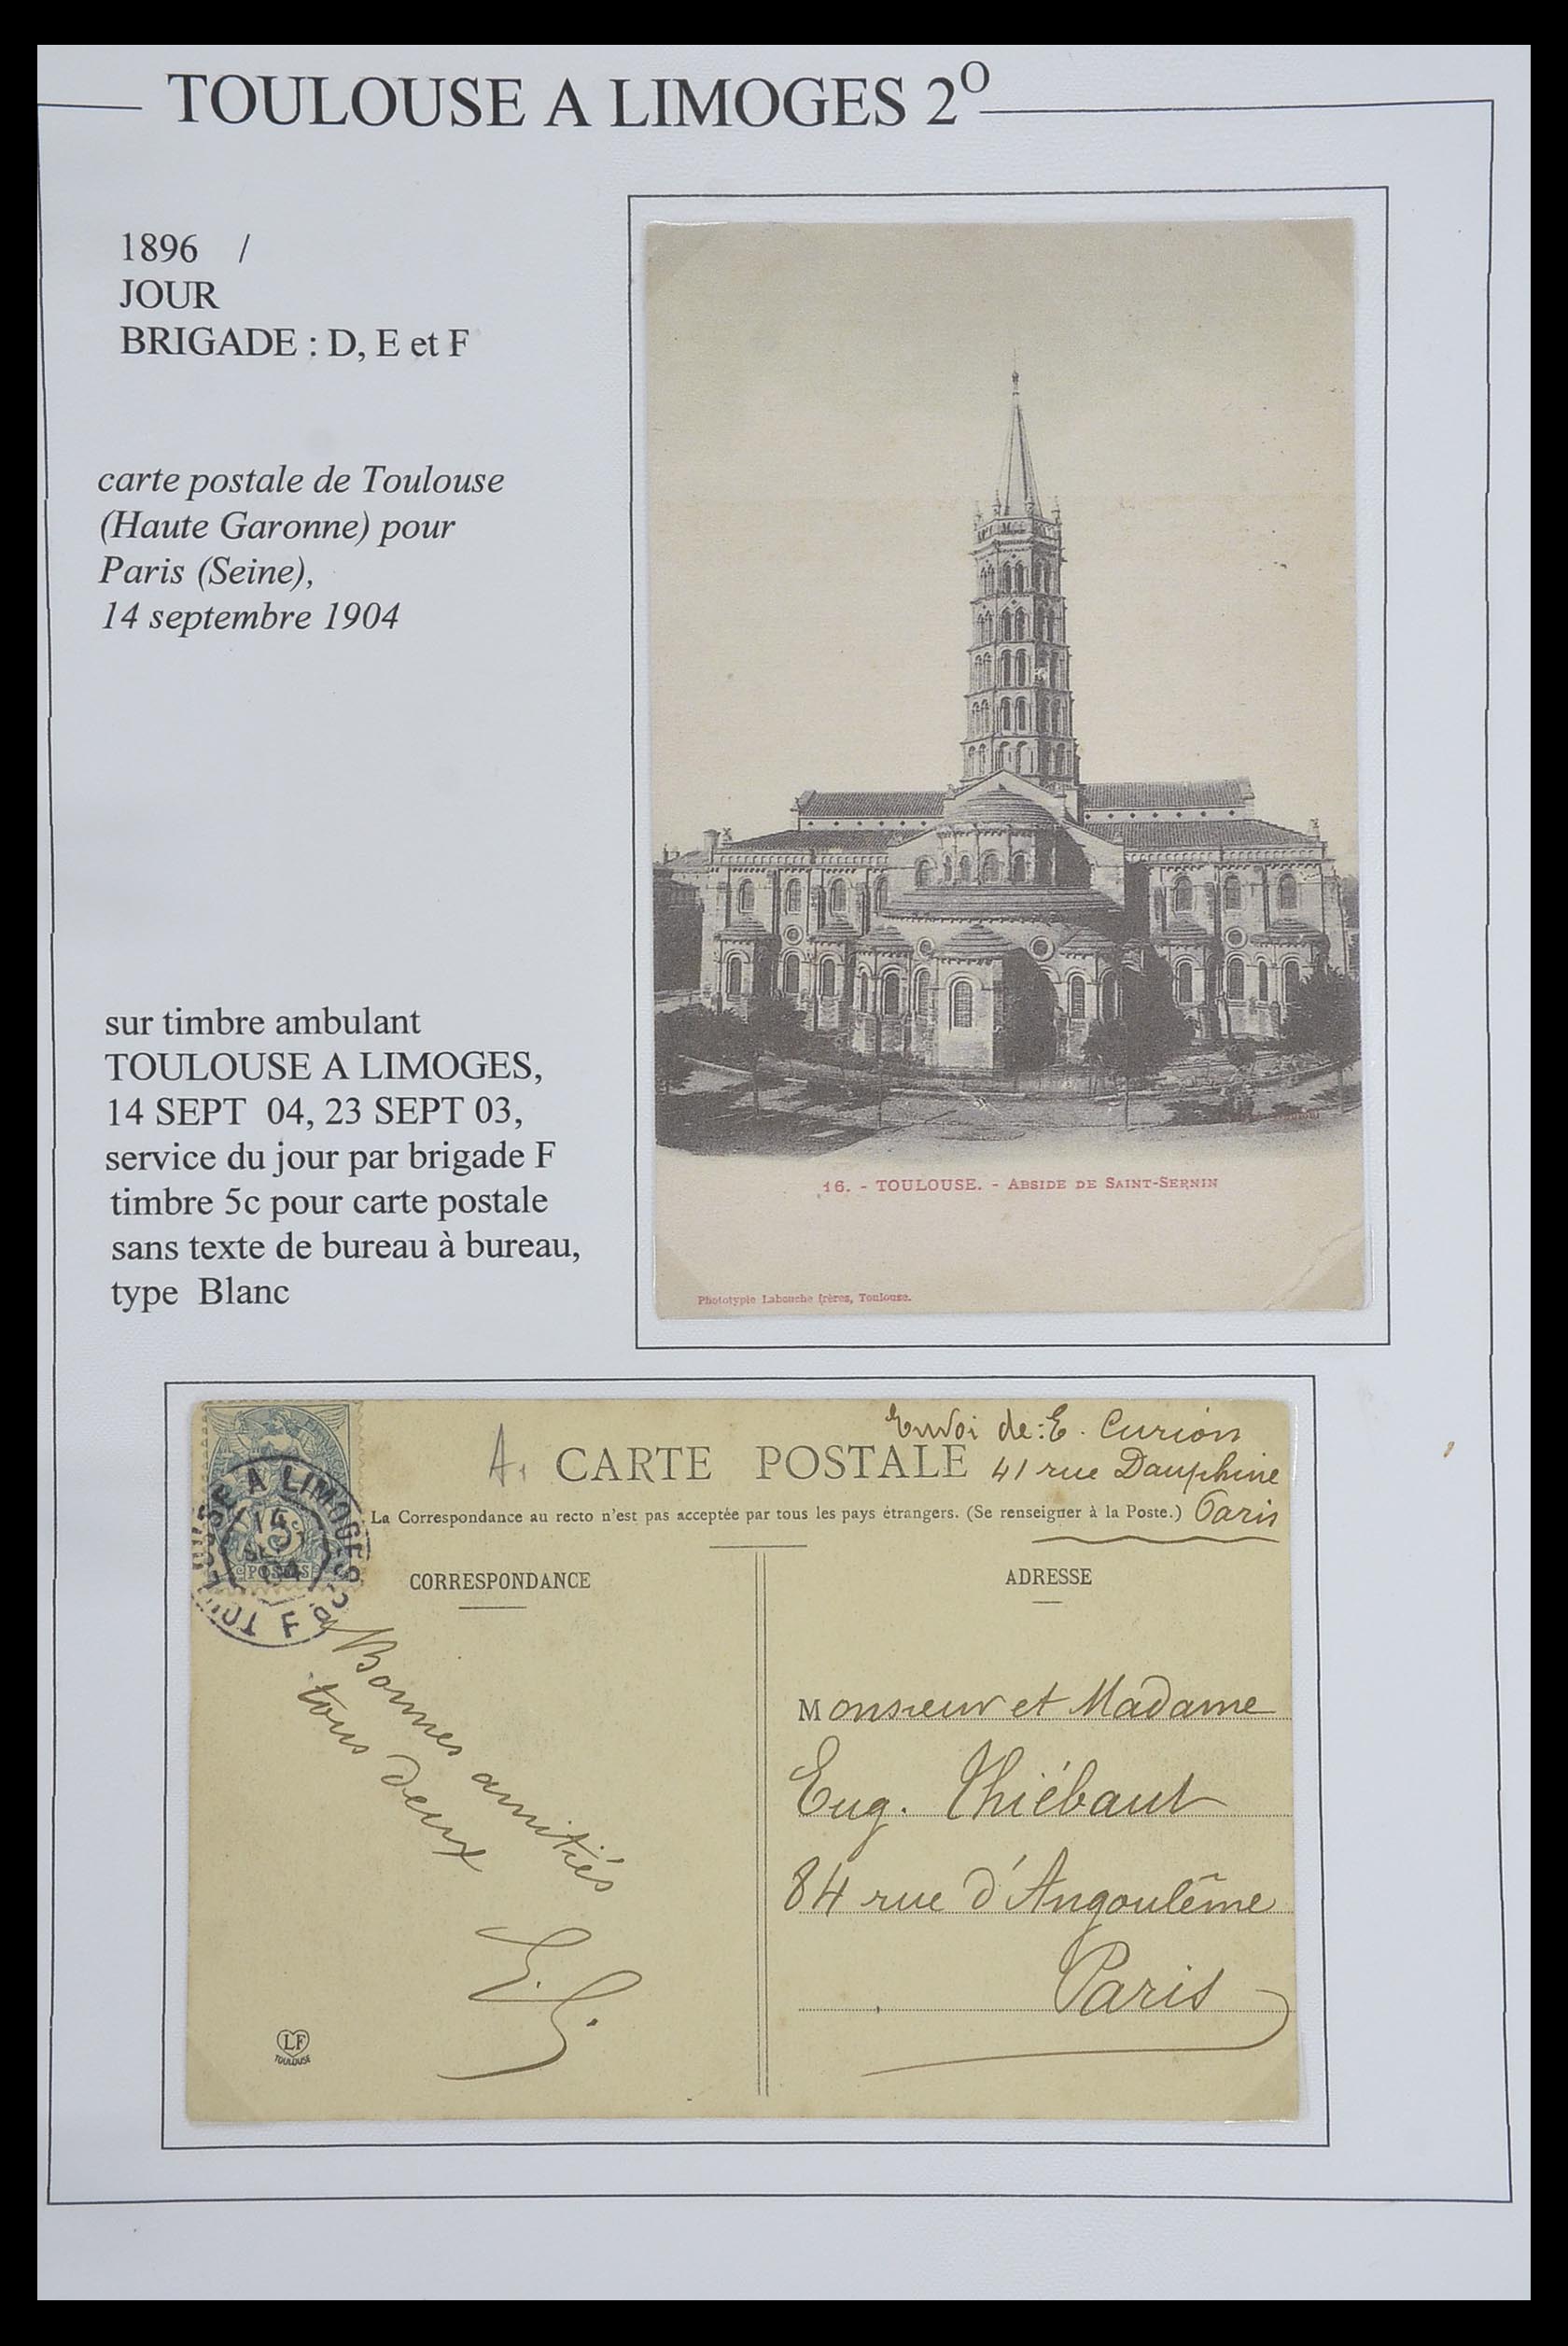 TOULOUSE A LIMOGES 2O
1896 /
JOUR
BRIGADE : D, E et F
carte postale de Toulouse
(Haute Garonne) pour
Paris (Seine),
14 septembre 1904
sur timbre ambulant
TOULOUSE A LIMOGES,
14 SEPT 04, 23 SEPT 03,
service du jour par brigade F
timbre 5c pour carte postale
sans texte de bureau à bureau,
type Blanc
16. - TOULOUSE. - ABSIDE DE SAINT-SERNIN
Phototypie Labouche frères, Toulouse.
Envoi de : E. Curion
A. CARTE POSTALE 41 rue Dauphine
La Correspondance au recto n'est pas acceptée par tous les pays étrangers. (Se renseigner à la Poste.) Paris
TOULOUSE A LIMOGES
14
04
F
POSTES
CORRESPONDANCE
ADRESSE
Bonnes amitiés
tous deux
Monsieur et Madame
Eug. Thiébaut
84 rue d'Angoulême
Paris
LF
TOULOUSE